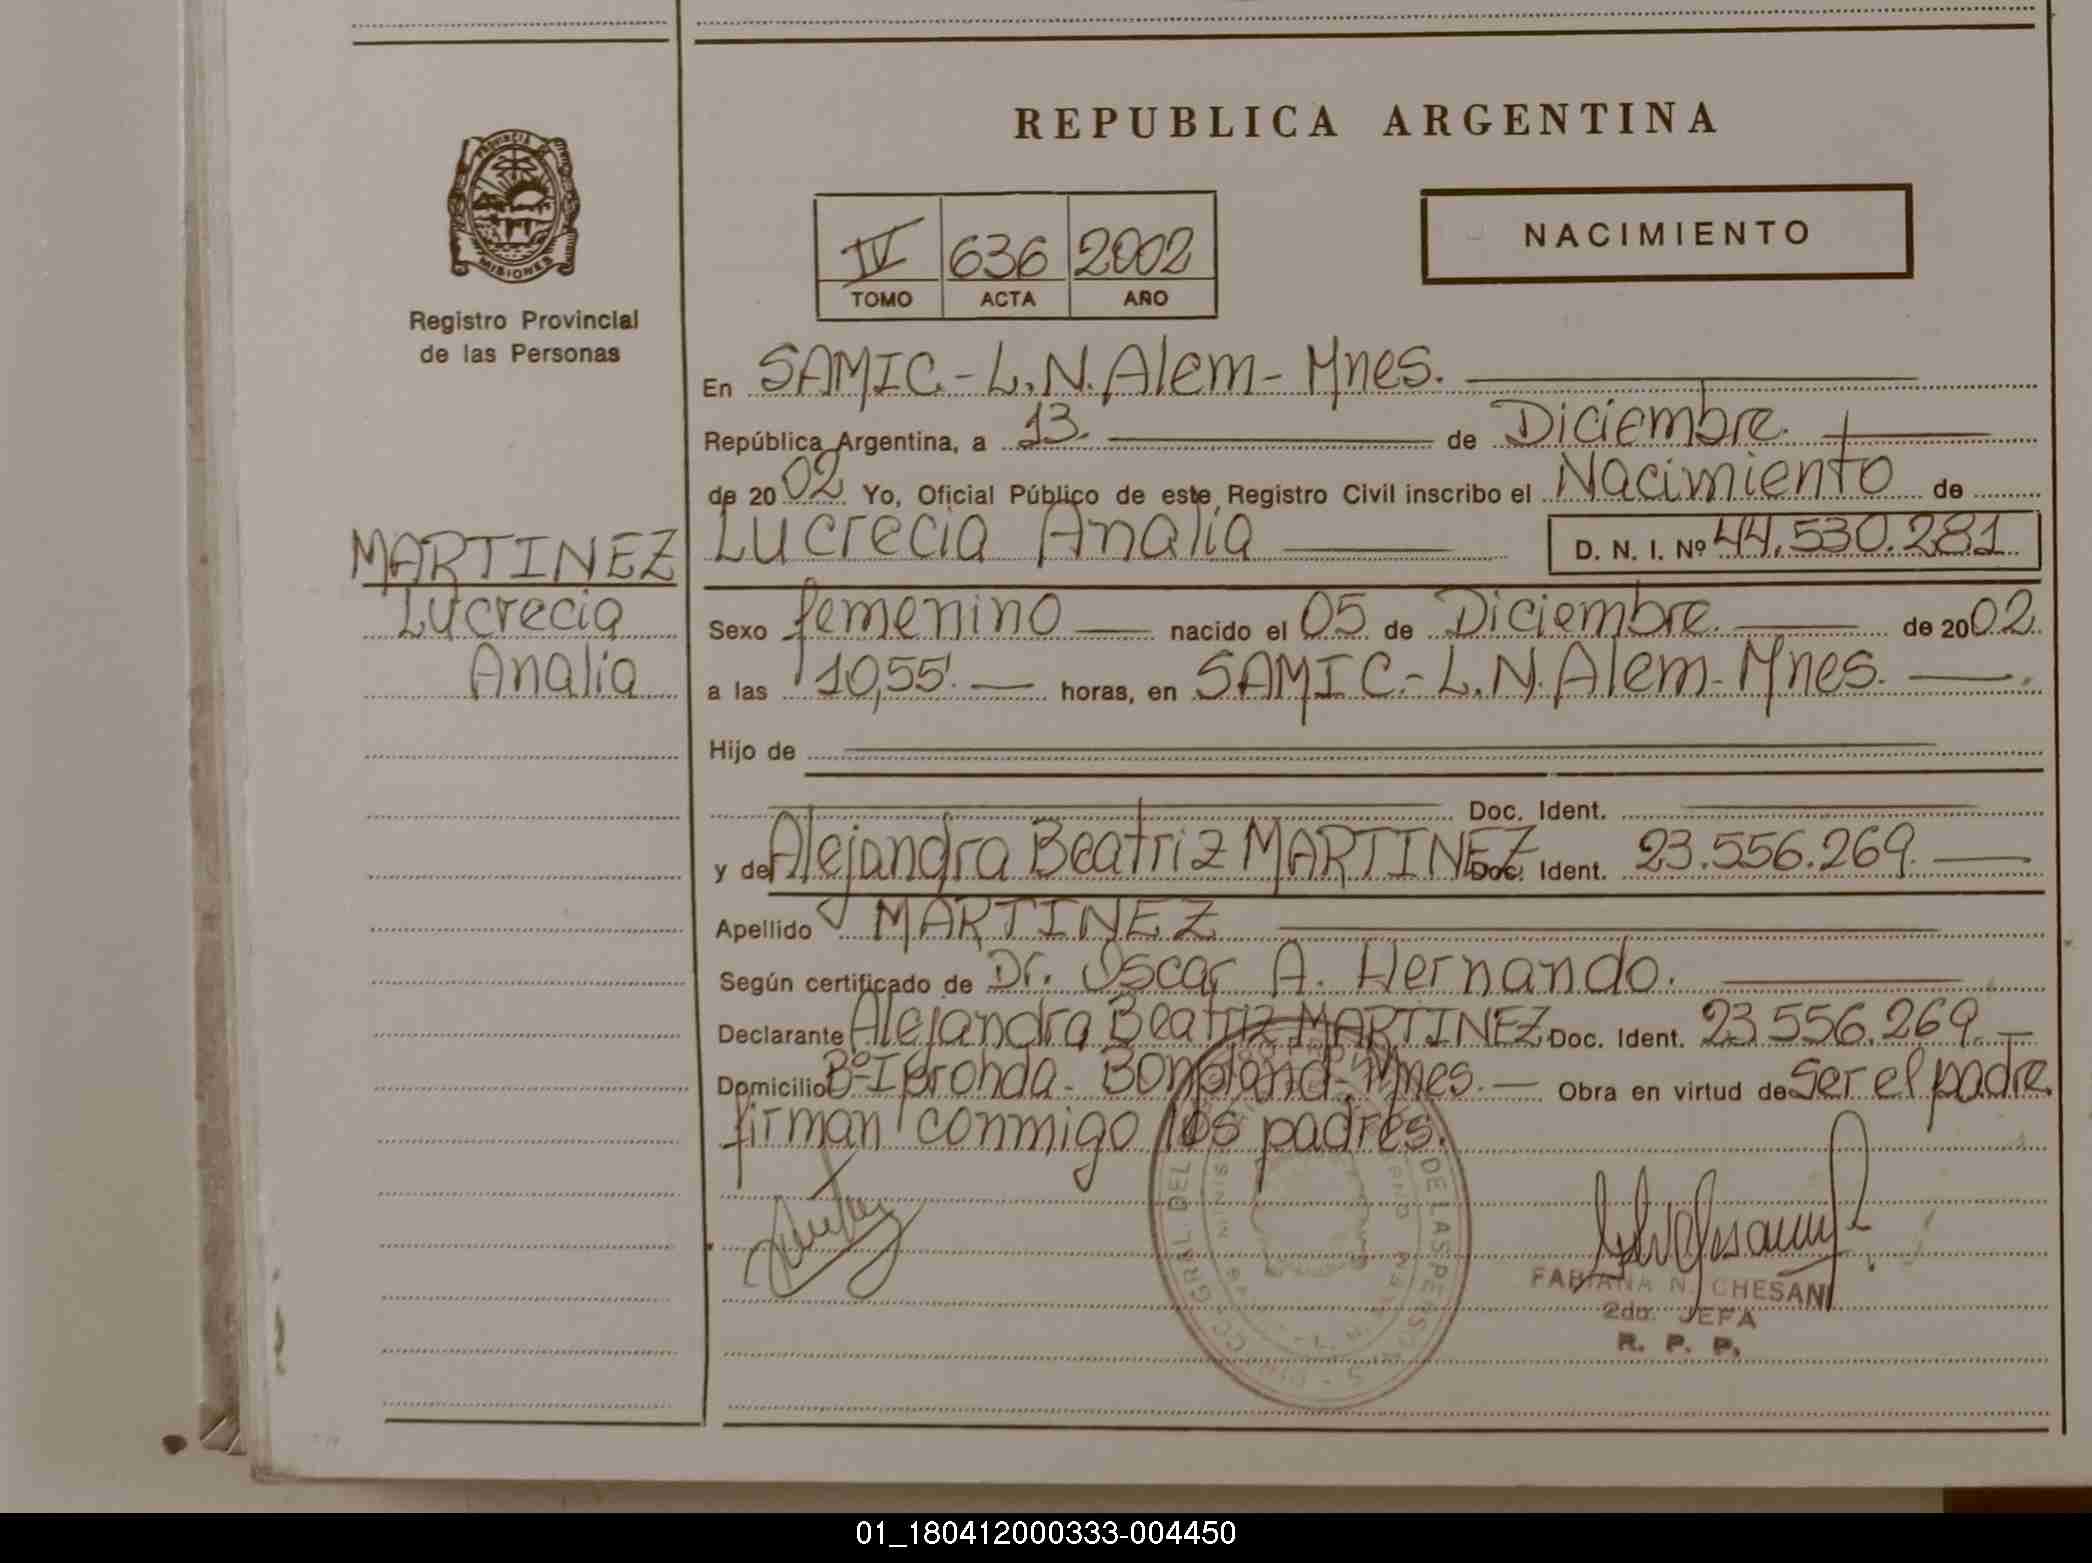 REPUBLICA ARGENTINA
PROVINCIA DE
MISIONES
Registro Provincial
de las Personas
IV 636 2002
TOMO ACTA AÑO
NACIMIENTO
En SAMIC.-L.N.Alem-Mnes.
República Argentina, a 13. de Diciembre.
de 2002 Yo, Oficial Público de este Registro Civil inscribo el Nacimiento de
Lucrecia Analia D. N. I. Nº 44.530.281
MARTINEZ
Lucrecia
Analia
Sexo femenino nacido el 05 de Diciembre. de 2002.
a las 10,55'. horas, en SAMIC.-L.N.Alem-Mnes.
Hijo de
Doc. Ident.
y de Alejandra Beatriz MARTINEZ Doc. Ident. 23.556.269.
Apellido MARTINEZ
Según certificado de Dr. Oscar A. Hernando.
Declarante Alejandra Beatriz MARTINEZ Doc. Ident. 23.556.269.
Domicilio Bº Bonpland-Mnes. Obra en virtud de Ser el padre.
firman conmigo los padres.
FABIANA N. CHESANI
2da. JEFA
R. P. P.
01_180412000333-004450